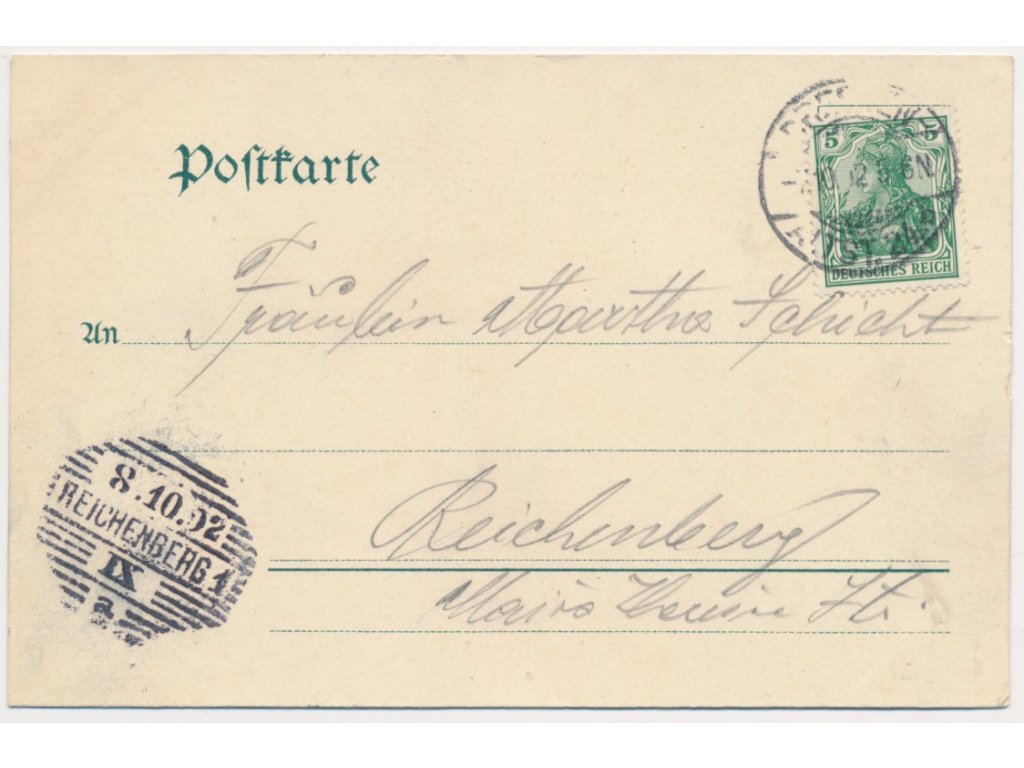 Postkarte
5 5
DEUTSCHES REICH
An Fräulein Martha Schicht
Reichenberg
St.
8.10.02
REICHENBERG 1
IX
a